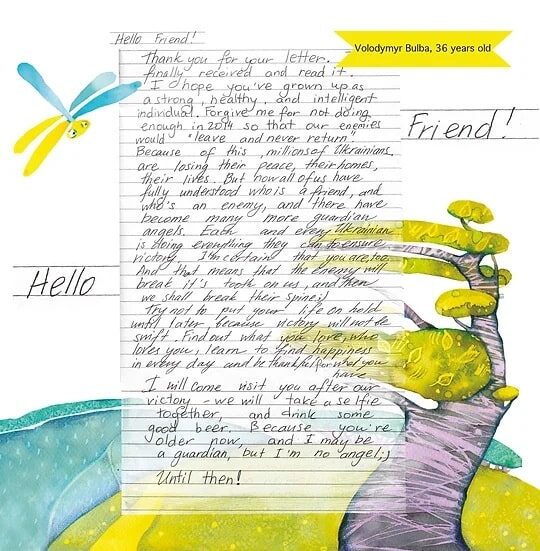 Hello Friend!
Volodymyr Bulba, 36 years old
Thank you for your letter.
finally received and read it.
I hope you've grown up as
a strong, healthy, and intelligent
individual. Forgive me for not doing
enough in 2014 so that our enemies
would "leave and never return"
Because of this, millions of Ukrainians
are losing their peace, their homes,
their lives. But now all of us have
fully understood who is a friend, and
who's an enemy, and there have
become many more guardian
angels. Each and every Ukrainian
is doing everything they can to ensure
victory. I'm certain that you are, too.
And that means that the enemy will
break it's tooth on us, and then
we shall break their spine;)
try not to put your life on hold
until later, because victory will not be
swift. Find out what you love, who
loves you, learn to find happiness
in every day and be thankful for what you
have
I will come visit you after our
victory - we will take a selfie
together, and drink some
good beer. Because you're
older now, and I may be
a guardian, but I'm no angel;)
Until then!
Friend!
Hello